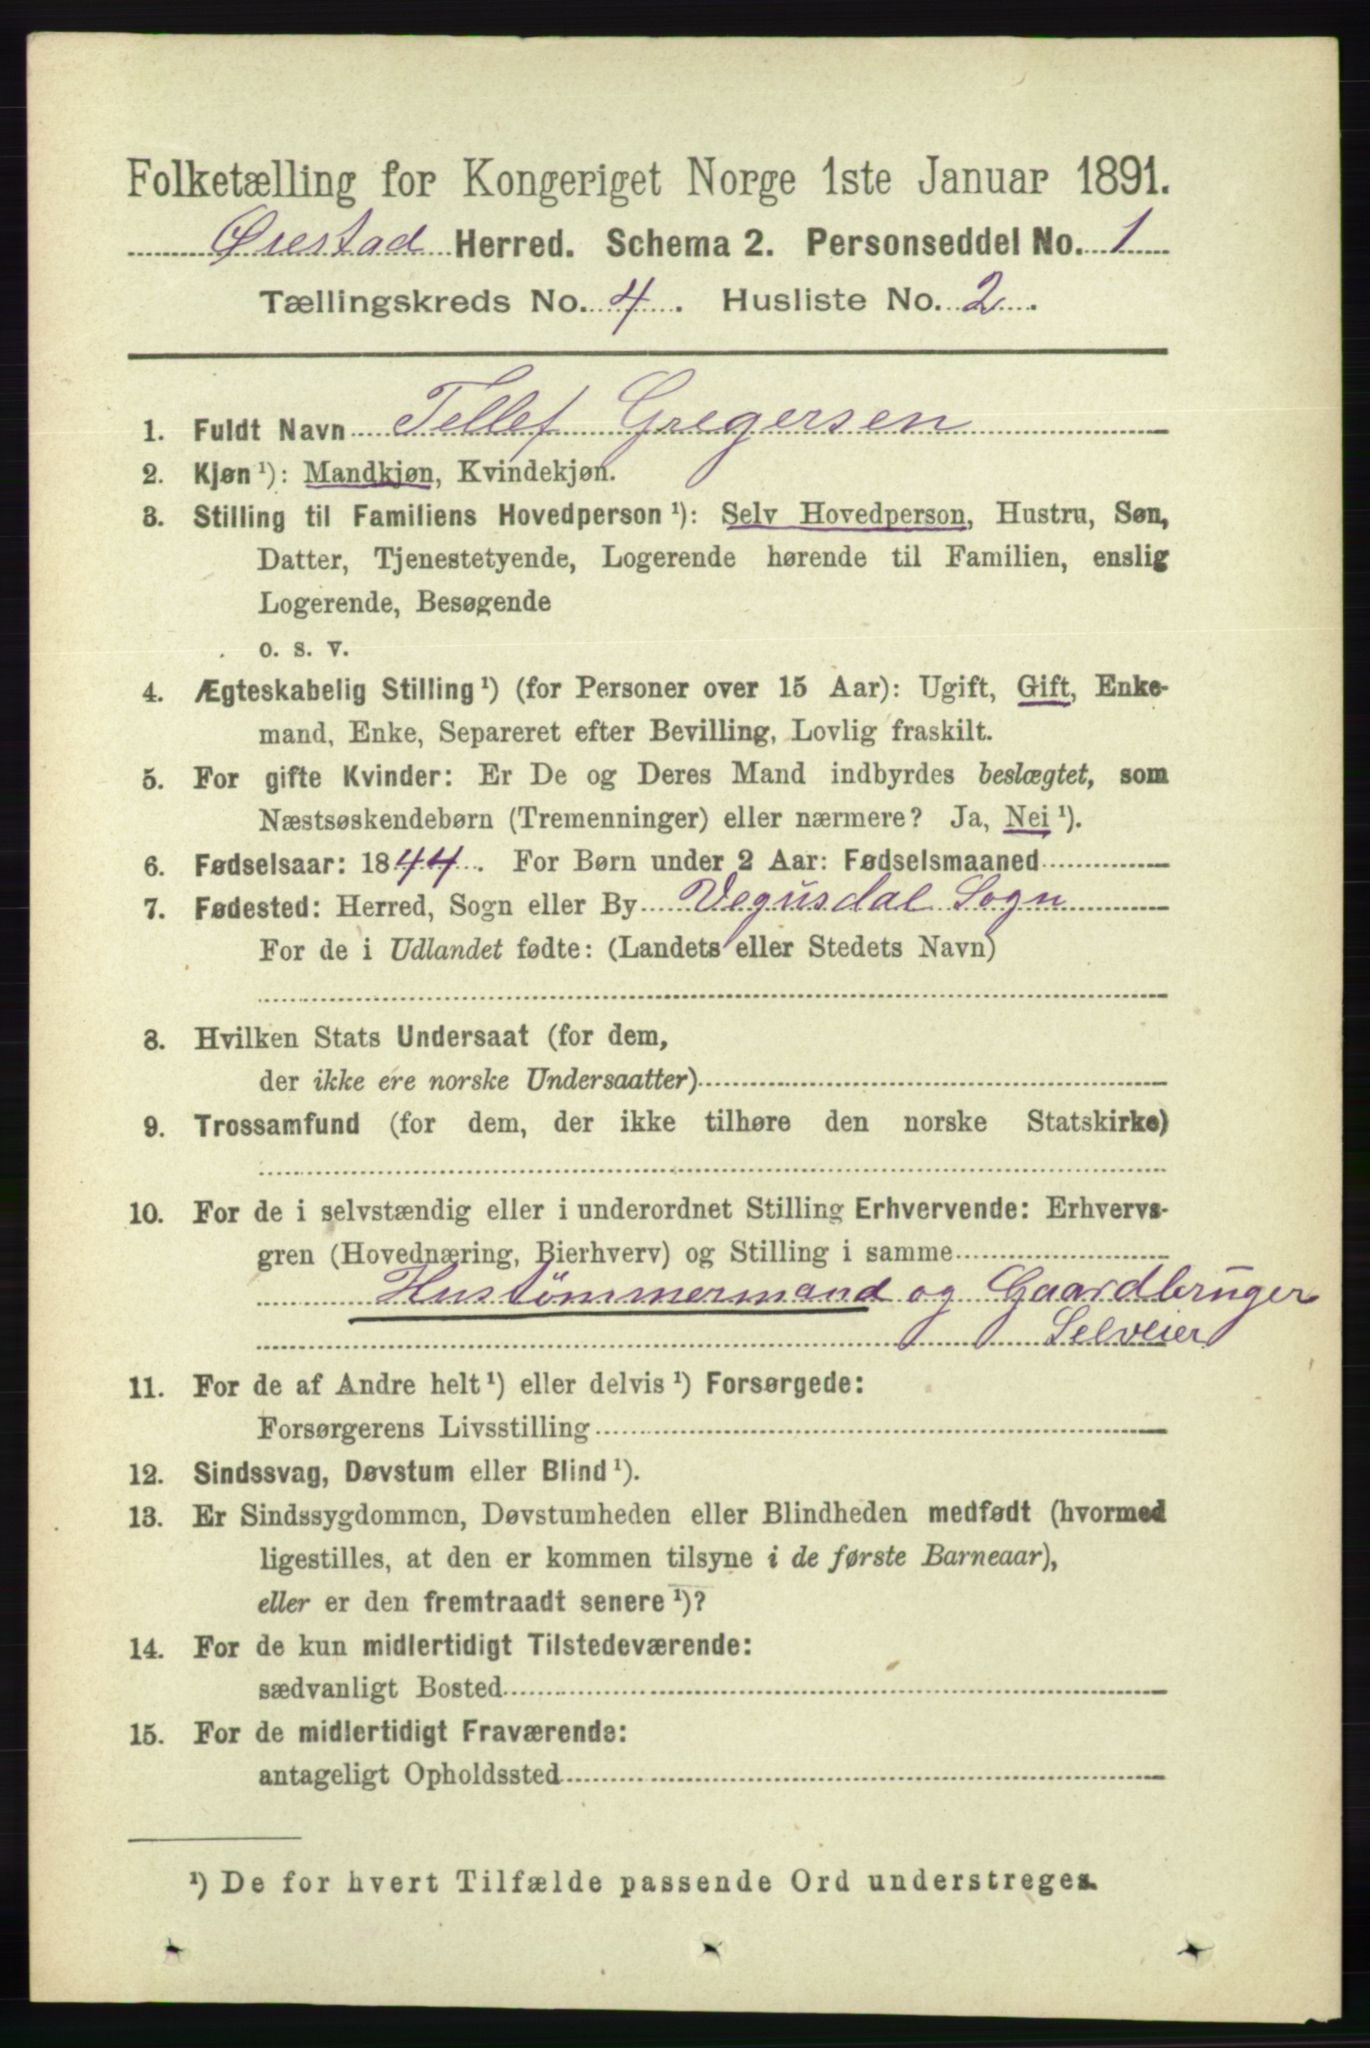 Folketælling for Kongeriget Norge 1ste Januar 1891.
Øiestad Herred. Schema 2. Personseddel No. 1
Tællingskreds No. 4. Husliste No. 2.
1. Fuldt Navn Tellef Gregersen
2. Kjøn ¹): Mandkjøn, Kvindekjøn.
3. Stilling til Familiens Hovedperson ¹): Selv Hovedperson, Hustru, Søn,
Datter, Tjenestetyende, Logerende hørende til Familien, enslig
Logerende, Besøgende
o. s. v.
4. Ægteskabelig Stilling ¹) (for Personer over 15 Aar): Ugift, Gift, Enke-
mand, Enke, Separeret efter Bevilling, Lovlig fraskilt.
5. For gifte Kvinder: Er De og Deres Mand indbyrdes beslægtet, som
Næstsøskendebørn (Tremenninger) eller nærmere? Ja, Nei ¹).
6. Fødselsaar: 1844. For Børn under 2 Aar: Fødselsmaaned
7. Fødested: Herred, Sogn eller By Vegusdal Sogn
For de i Udlandet fødte: (Landets eller Stedets Navn)
8. Hvilken Stats Undersaat (for dem,
der ikke ere norske Undersaatter)
9. Trossamfund (for dem, der ikke tilhøre den norske Statskirke)
10. For de i selvstændig eller i underordnet Stilling Erhvervende: Erhvervs-
gren (Hovednæring, Bierhverv) og Stilling i samme
Hustømmermand og Gaardbruger
Selveier
11. For de af Andre helt ¹) eller delvis ¹) Forsørgede:
Forsørgerens Livsstilling
12. Sindssvag, Døvstum eller Blind ¹).
13. Er Sindssygdommen, Døvstumheden eller Blindheden medfødt (hvormed
ligestilles, at den er kommen tilsyne i de første Barneaar),
eller er den fremtraadt senere ¹)?
14. For de kun midlertidigt Tilstedeværende:
sædvanligt Bosted
15. For de midlertidigt Fraværende:
antageligt Opholdssted
¹) De for hvert Tilfælde passende Ord understreges.